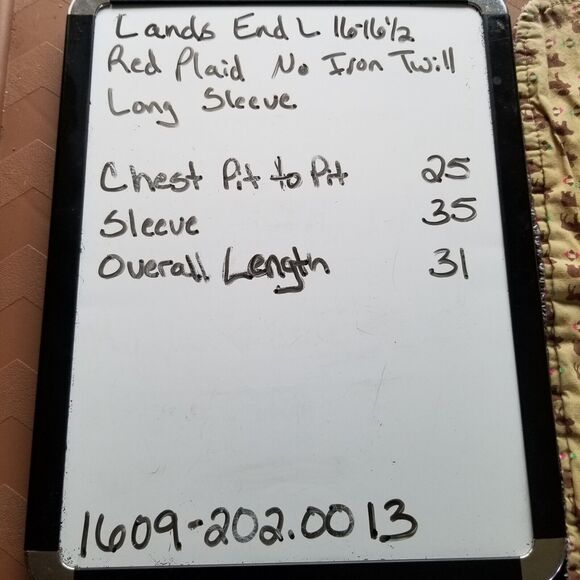 Lands End L 16-16 1/2
Red Plaid No Iron Twill
Long Sleeve
Chest Pit to Pit 25
Sleeve 35
Overall Length 31
1609-202.0013